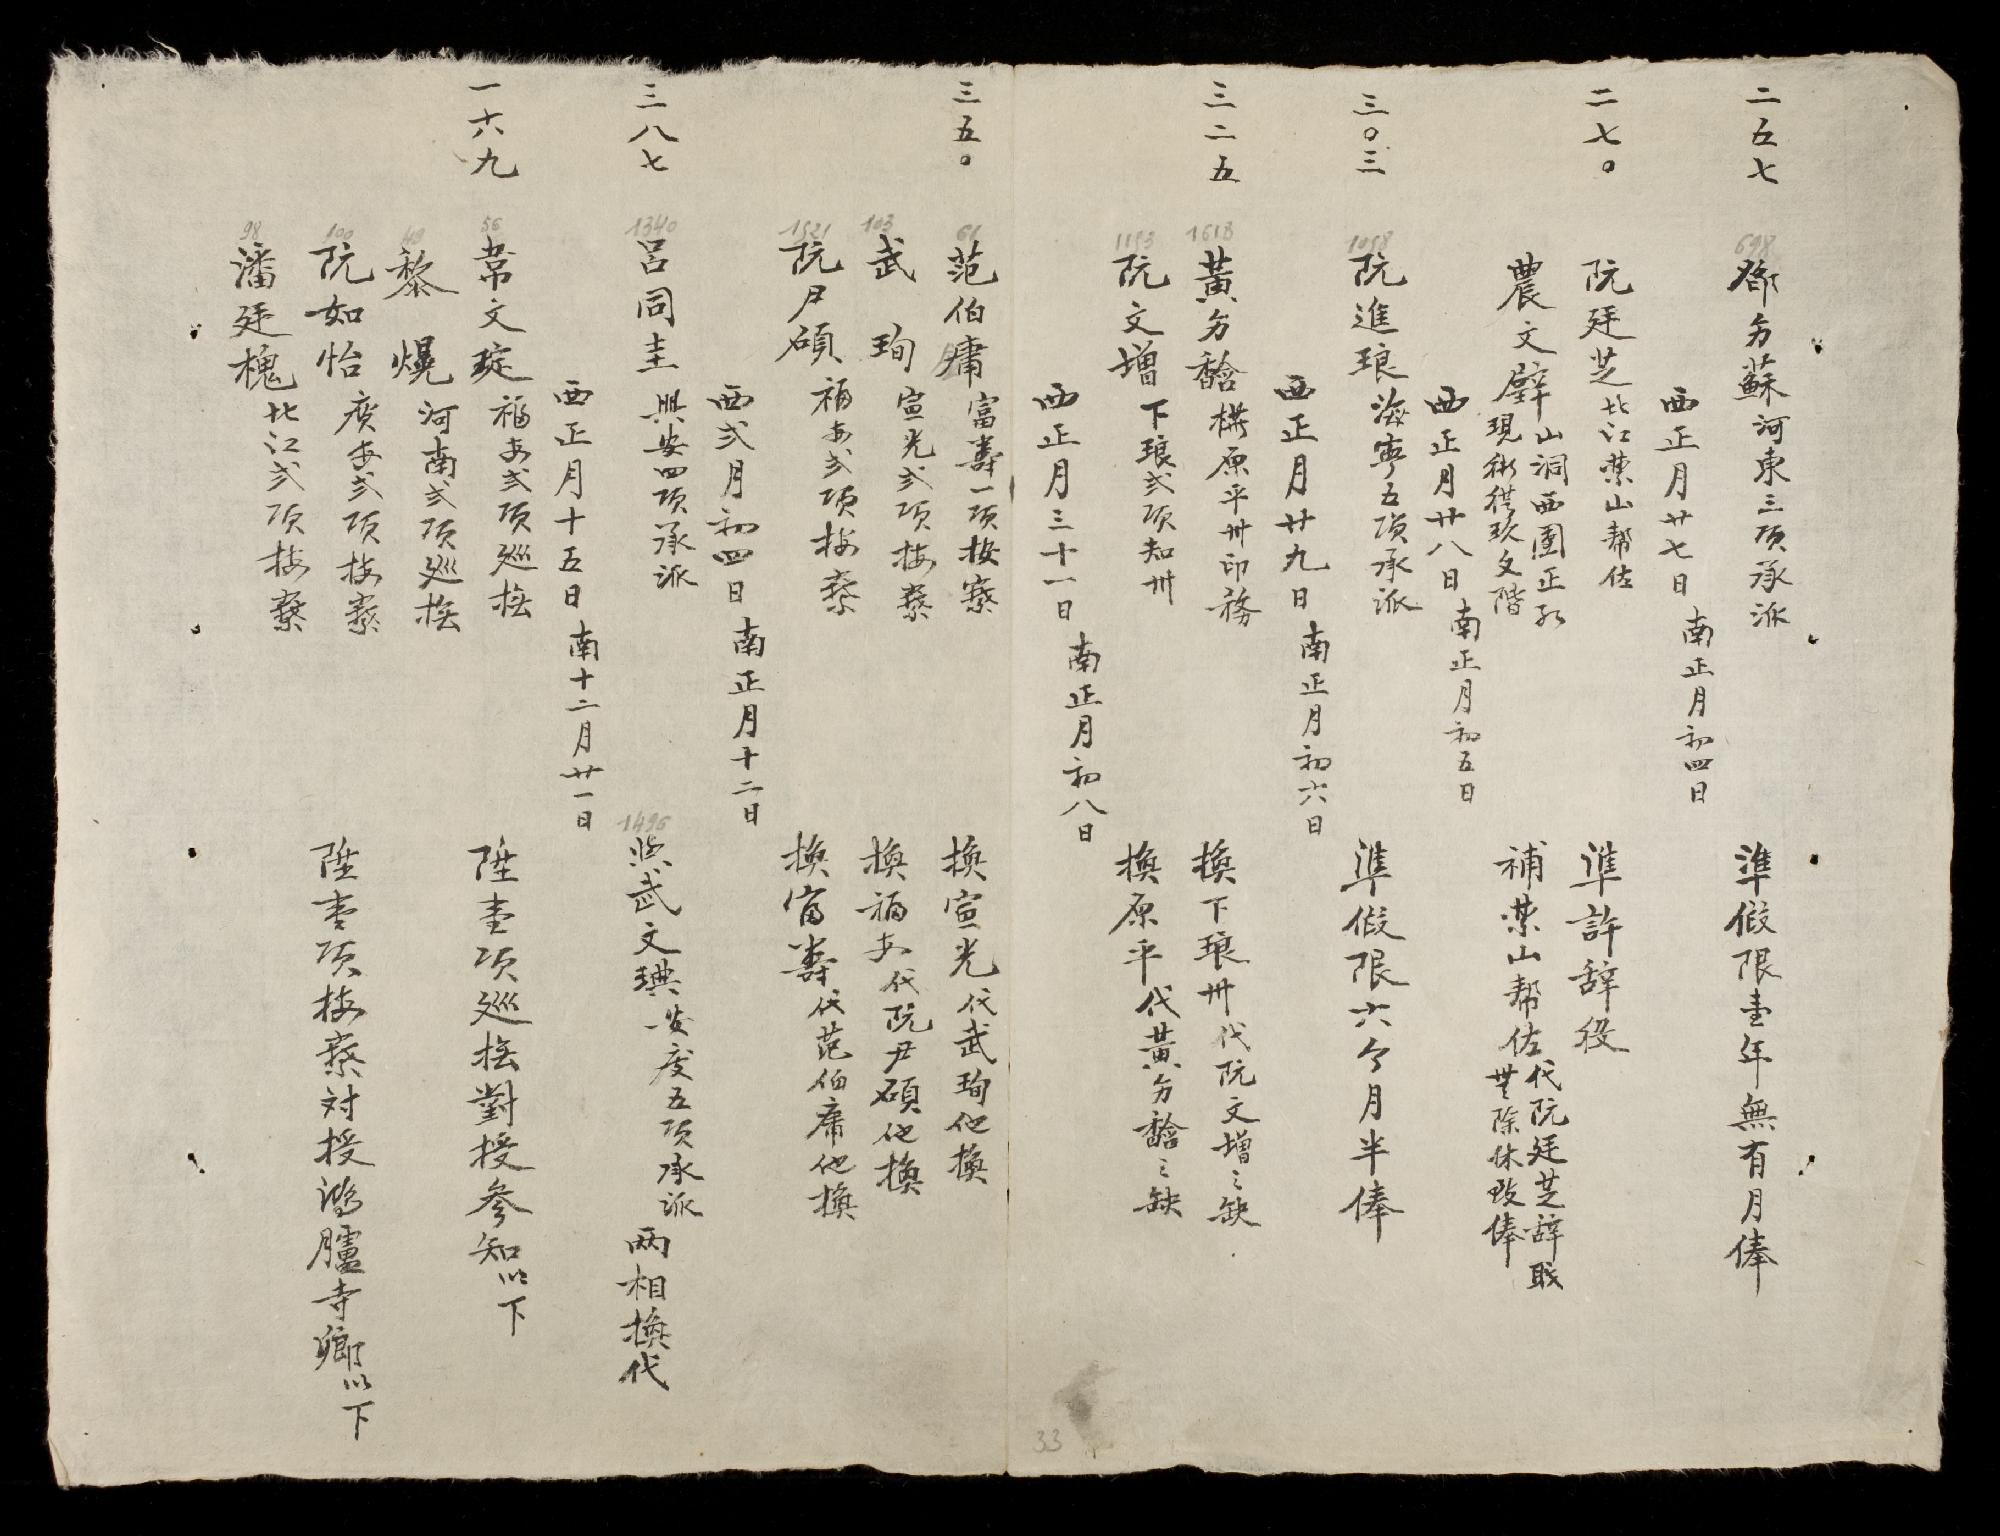 二五七
698
鄧勻蘇河東三項承派
準假限壹年無有月俸
西正月廿七日南正月初四日
二七〇
阮廷芝北江藥山幫佐
準許辞役
農文壁山洞西團正
現衔從玖文階
補藥山幫佐代阮廷芝辞職
西正月廿八日南正月初五日
三〇三
1098
阮進琅海寧五項承派
準假限六个月半俸
西正月廿九日南正月初六日
三二五
1618
黃勻馠權原平州印務
換下琅州代阮文增之缺
1193
阮文增下琅弍項知州
換原平代黃勻馠之缺
西正月三十一日南正月初八日
三五〇
61
范伯庸富壽一項按察
換宣光代武珣他換
103
武珣宣光弍項按察
換福安代阮尹碩他換
1521
阮尹碩福安弍項按察
換富壽代范伯庸他換
西弍月初四日南正月十二日
三八七
1340
呂同圭興安四項承派
1496
與武文琠安度五項承派兩相換代
西正月十五日南十二月廿一日
一六九
56
韋文琔福安弍項巡撫
陞壹項巡撫對授參知以下
49
黎熀河南弍項巡撫
100
阮如怡廣安弍項按察
陞壹項按察対授鴻臚寺卿以下
98
潘廷槐北江弍項按察
33